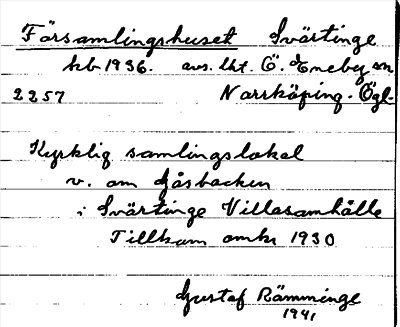 Församlingshuset Svärtinge
kb 1936. avs. lht. Ö. Eneby sn
2257 Norrköping. Ögl.
Kyrklig samlingslokal
v. om Gåsbacken
i Svärtinge Villasamhälle
Tillkom omkr 1930
Gustaf Rämminge
1941